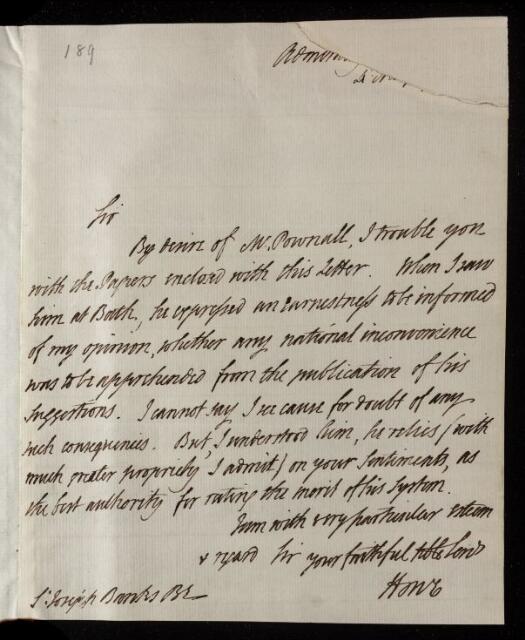 189
Sir
By desire of Mr. Pownall, I trouble you
with the Papers enclosed with this Letter. When I saw
him at Bath, he expressed an earnestness to be informed
of my opinion, whether any national inconvenience
was to be apprehended from the publication of his
suggestions. I cannot say I see cause for doubt of any
such consequences. But, I understood him, he relies (with
much greater propriety I admit) on your Sentiments, as
the best authority for rating the merit of his System.
I am with very particular esteem
& regard Sir your faithful
Howe
Sr. Joseph Banks Bt